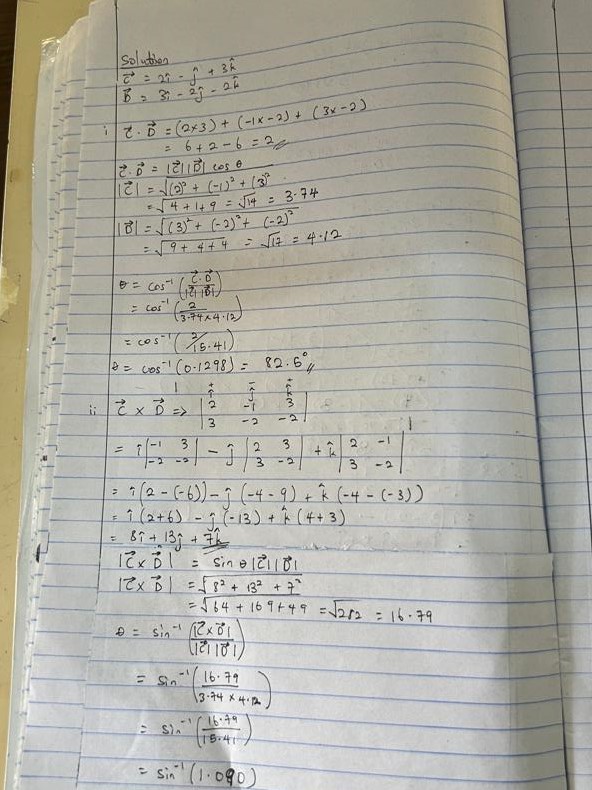 Solution
C⃗ = 2î - ĵ + 3k̂
D⃗ = 3î - 2ĵ - 2k̂
i C⃗ . D⃗ = (2×3) + (-1×-2) + (3×-2)
= 6 + 2 - 6 = 2
C⃗ . D⃗ = |C⃗| |D⃗| cos θ
|C⃗| = √(2)² + (-1)² + (3)²
= √4+1+9 = √14 = 3.74
|D⃗| = √(3)² + (-2)² + (-2)²
= √9 + 4+4 = √17 = 4.12
θ = cos⁻¹ (C⃗.D⃗ / |C⃗| |D⃗|)
= cos⁻¹ (2 / 3.74×4.12)
= cos⁻¹ (2/15.41)
θ = cos⁻¹ (0.1298) = 82.5°
ii C⃗ × D⃗ => | + î - ĵ + k̂ |
| 2 -1 3 |
| 3 -2 -2 |
= î |-1 3| - ĵ |2 3| + k̂ |2 -1|
|-2 -2| |3 -2| |3 -2|
= î (2 - (-6)) - ĵ (-4 - 9) + k̂ (-4 - (-3))
= î (2+6) - ĵ (-13) + k̂ (4+3)
= 8î + 13ĵ + 7k̂
|C⃗ × D⃗| = sin θ |C⃗| |D⃗|
|C⃗ × D⃗| = √8² + 13² + 7²
= √64 + 169 + 49 = √282 = 16.79
θ = sin⁻¹ (|C⃗×D⃗| / |C⃗| |D⃗|)
= sin⁻¹ (16.79 / 3.74 × 4.12)
= sin⁻¹ (16.79 / 15.41)
= sin⁻¹ (1.090)